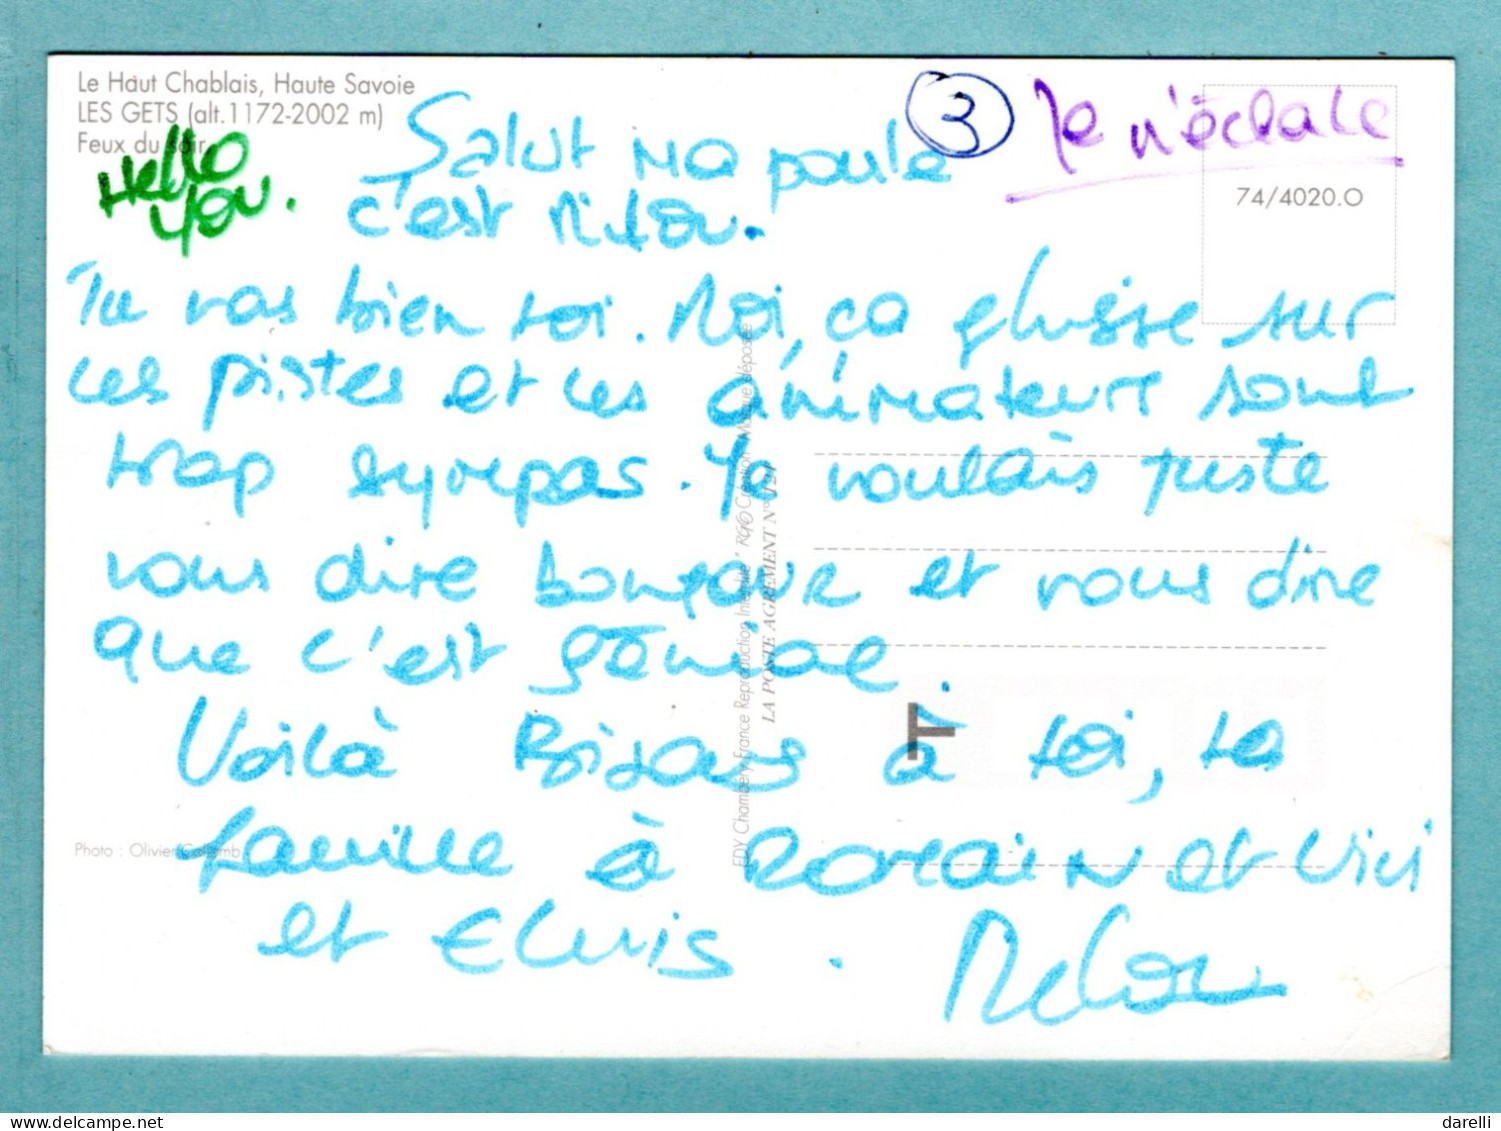 Le Haut Chablais, Haute Savoie
LES GETS (alt. 1172-2002 m)
Feux du soir
Hello
You.
3
Je m'éclate
74/4020.O
Salut ma poule
c'est Milou.
Tu vas bien toi. Moi, ça glisse sur
les pistes et les animateurs sont
trop sympas. Je voulais juste
vous dire bonjour et vous dire
que c'est génial.
Voilà Bisous à toi, ta
famille à Romain et Vici
et Elvis.
EDY Chambéry, France Reproduction Interdite " Création Marque déposée
LA POSTE AGREMENT N°
T
Photo : Olivier
delcampe.net
darelli